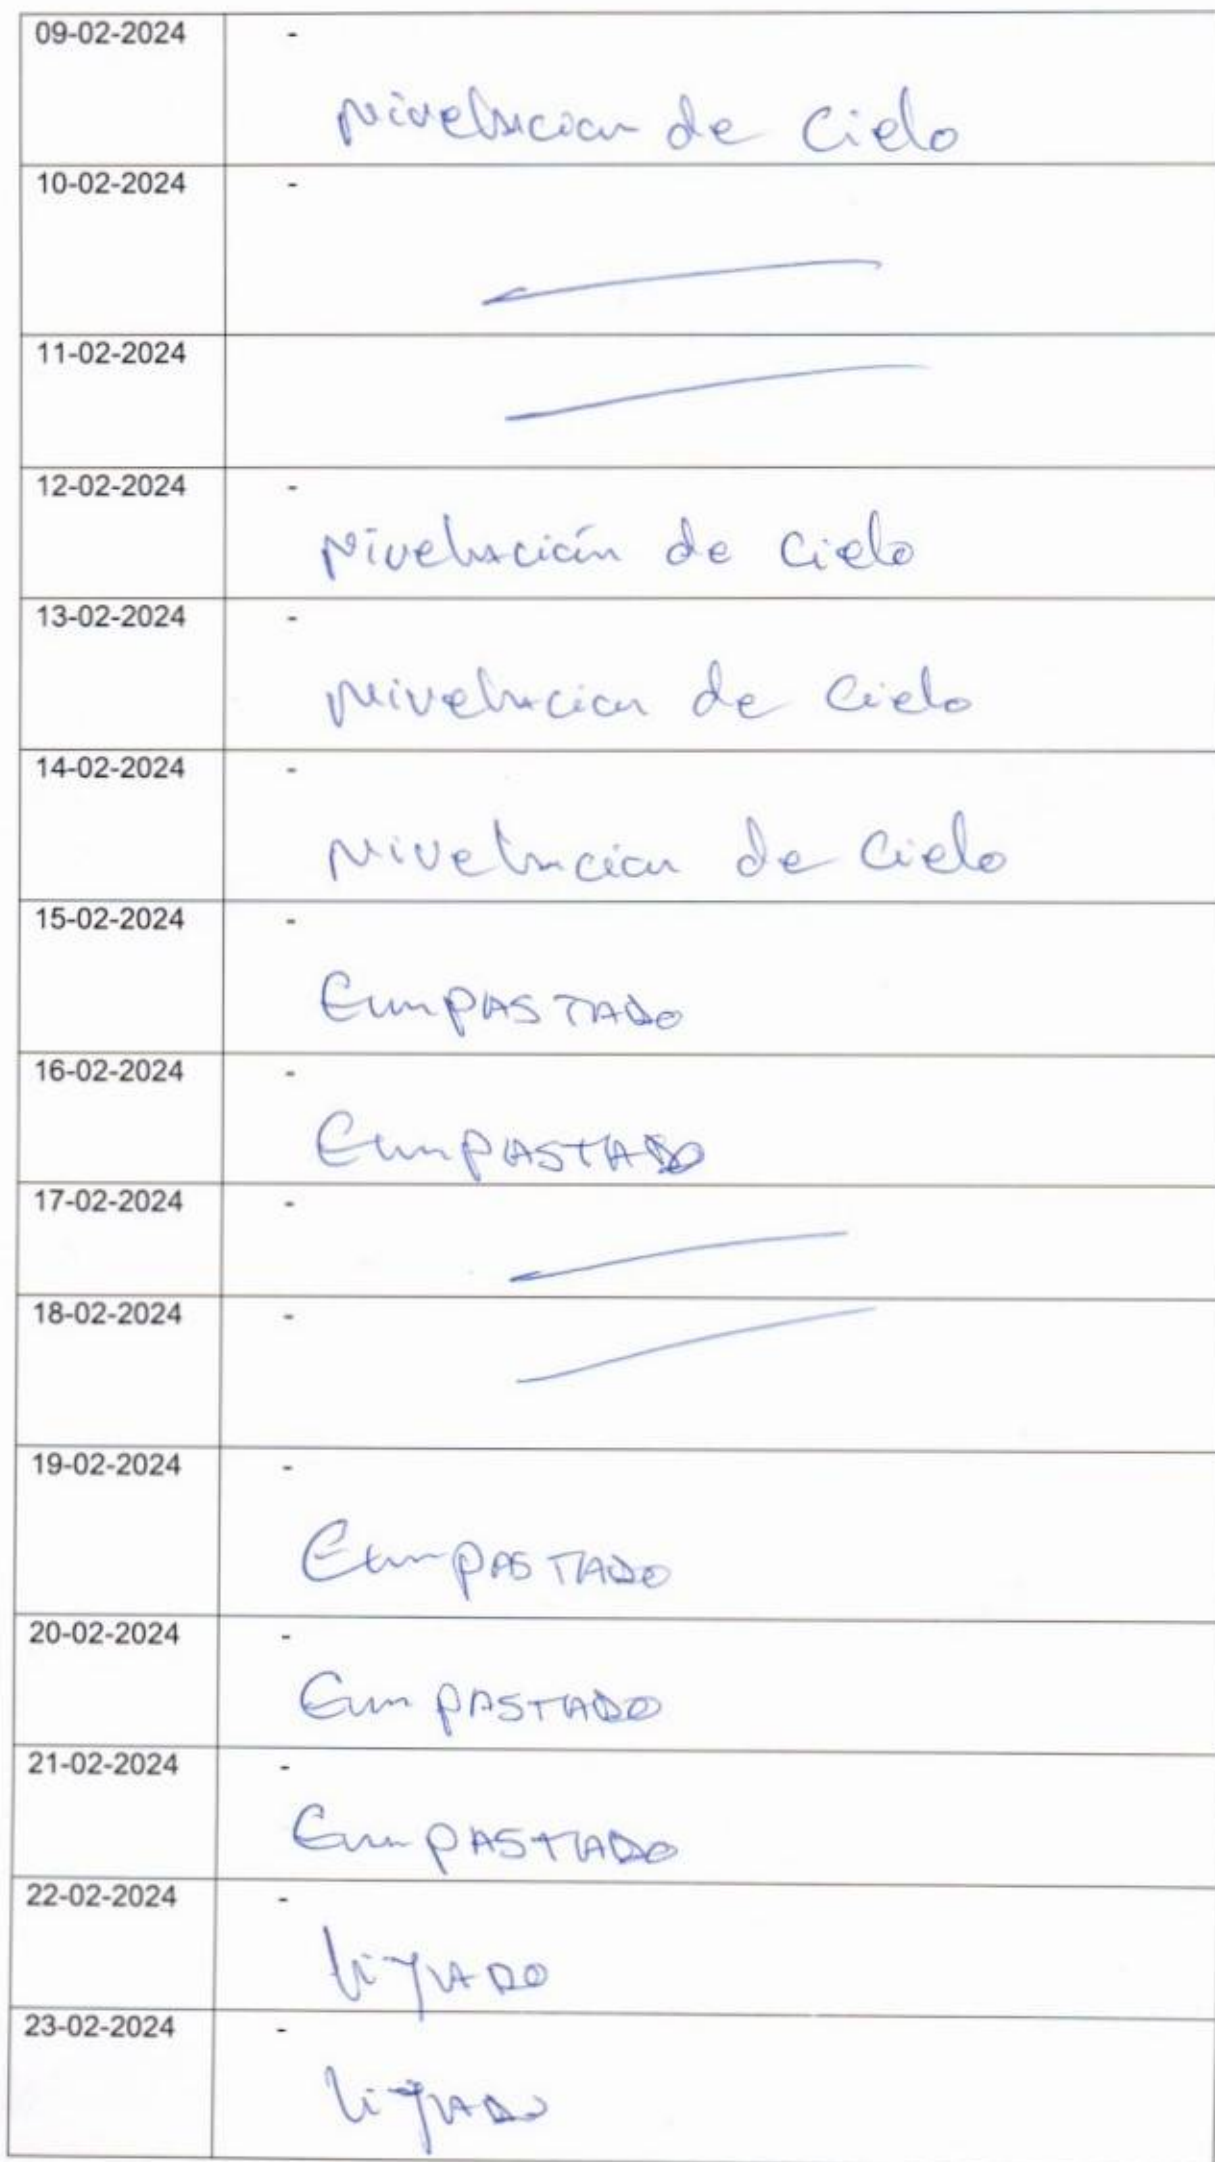 09-02-2024 -
Nivelacion de Cielo
10-02-2024 -
11-02-2024
12-02-2024 -
Nivelación de Cielo
13-02-2024 -
Nivelacion de Cielo
14-02-2024 -
Nivelacion de Cielo
15-02-2024 -
EmPASTADO
16-02-2024 -
EmPASTADO
17-02-2024 -
18-02-2024 -
19-02-2024 -
EmPASTADO
20-02-2024 -
EmPASTADO
21-02-2024 -
EmPASTADO
22-02-2024 -
lijADO
23-02-2024 -
lijADO